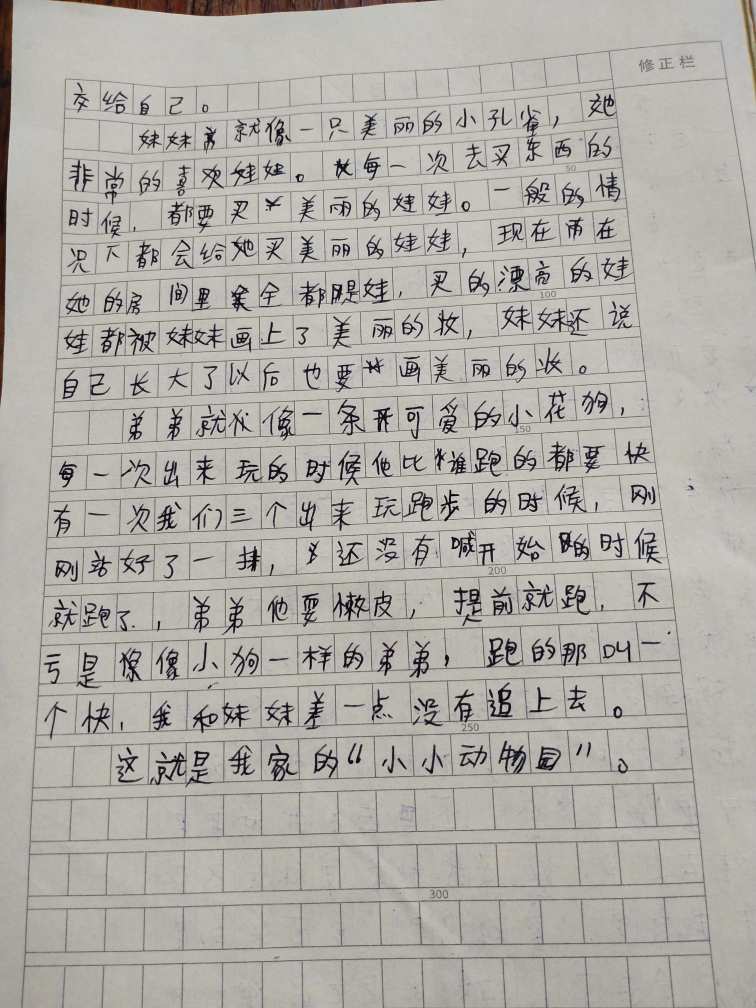 修正栏
交给自己。
妹妹就像一只美丽的小孔雀，她
非常的喜欢娃娃。每一次去买东西的
50
时候，都要买美丽的娃娃。一般的情
况下都会给她买美丽的娃娃，现在在
她的房间里全都是娃，买的漂亮的娃
100
娃都被妹妹画上了美丽的妆，妹妹还说
自己长大了以后也要画美丽的妆。
弟弟就像一条可爱的小花狗，
150
每一次出来玩的时候他比谁跑的都要快
有一次我们三个出来玩跑步的时候，刚
刚站好了一排，还没有喊开始的时候
200
就跑了，弟弟他耍懒皮，提前就跑，不
亏是像小狗一样的弟弟，跑的那叫一
个快，我和妹妹差一点没有追上去。
250
这就是我家的“小小动物园”。
300